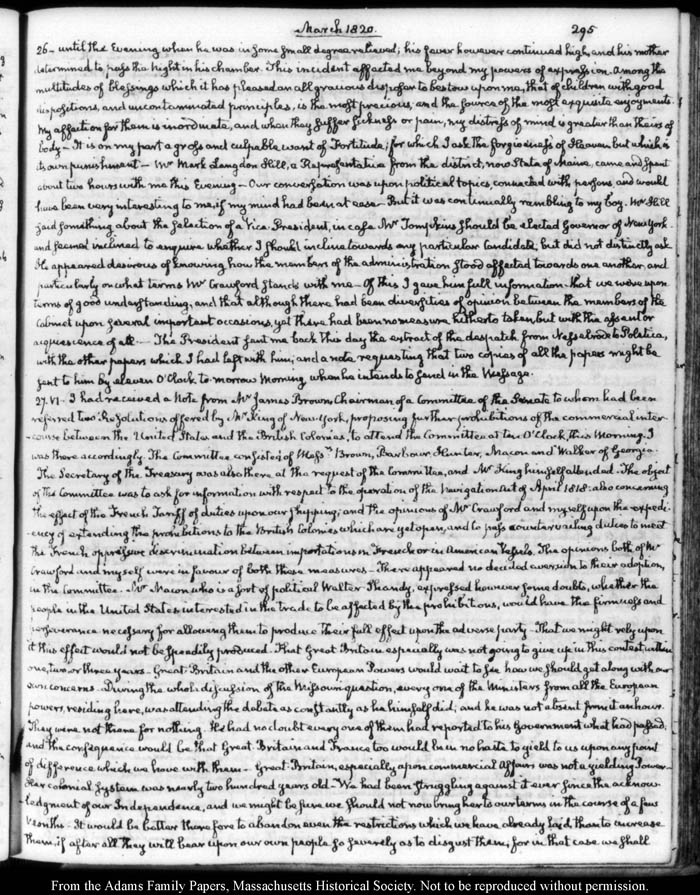 March 1820. 295
26- until the Evening when he was in some small degree relieved; his fever however continued high, and his mother
determined to pass the Night in his chamber. This incident affected me beyond my powers of expression. Among the
multitudes of blessings which it has pleased an all gracious disposer to bestow upon me, that of children with good
dispositions, and uncontaminated principles, is the most precious, and the source of the most exquisite enjoyments.
My affection for them is inordinate, and when they suffer sickness or pain, my distress of mind is greater than theirs of
body- It is on my part a gross and culpable want of Fortitude; for which I ask the forgiveness of Heaven, but which is
its own punishment- Mr Mark Langdon Hill, a Representative from the district, now State of Maine, came and spent
about two hours with me this Evening- Our conversation was upon political topics connected with persons, and would
have been very interesting to me, if my mind had been at ease- But it was continually rambling to my boy. Mr Hill
said something about the selection of a Vice-President, in case Mr Tompkins should be elected Governor of New York
and seemed inclined to enquire whether I should incline towards any particular Candidate, but did not distinctly ask
He appeared desirous of knowing how the members of the administration stood affected towards one another, and
particularly on what terms Mr Crawford stands with me- Of this I gave him full information- that we were upon
terms of good understanding; and that although there had been diversities of opinion between the members of the
Cabinet upon several important occasions, yet there had been no measure hitherto taken, but with the assent or
acquiescence of all- The President sent me back this day the extract of the despatch from Nesselrode to Poletica,
with the other papers which I had left with him; and a note, requesting that two copies of all the papers might be
sent to him by eleven O'Clock to-morrow Morning, when he intends to send in the Message.
27. VI- I had received a Note from Mr James Brown, Chairman of a Committee of the Senate to whom had been
referred two Resolutions offered by Mr King of New York, proposing further prohibitions of the commercial inter-
-course between the United States and the British Colonies, to attend the Committee at ten O'Clock, this Morning. I
was there accordingly. The Committee consisted of Messrs Brown, Barbour, Hunter, Macon and Walker of Georgia.
The Secretary of the Treasury was also there at the request of the Committee, and Mr King himself attended. The object
of the Committee was to ask for information with respect to the operation of the Navigation Act of April 1818. also concerning
the effect of the French Tariff of duties upon our shipping; and the opinions of Mr Crawford and myself upon the expedi-
-ency of extending the prohibitions to the British Colonies which are yet open, and to pass countervailing duties to meet
the French oppressive discrimination between importations in French or in American Vessels. The opinions both of Mr
Crawford and myself were in favour of both these measures- There appeared no decided aversion to their adoption,
in the Committee. Mr Macon who is a sort of political Walter Shandy, expressed however some doubts, whether the
people in the United States interested in the trade to be affected by the prohibitions, would have the firmness and
perseverance necessary for allowing them to produce their full effect upon the adverse party- That we might rely upon
it this effect would not be speedily produced. That Great Britain especially was not going to give up in this contest within
one, two or three years- Great-Britain and the other European Powers would wait to see how we should get along with our
own concerns- During the whole discussion of the Missouri question, every one of the Ministers from all the European
powers, residing here, was attending the debate as constantly as he himself did; and he was not absent from it an hour.
They were not there for nothing. He had no doubt every one of them had reported to his Government what had passed,
and the consequence would be that Great Britain and France too would be in no haste to yield to us upon any point
of difference which we have with them- Great-Britain, especially upon commercial Affairs was not a yielding Power
Her colonial system was nearly two hundred years old- We had been struggling against it ever since the acknow-
-ledgment of our Independence, and we might be sure we should not now bring her to our terms in the course of a few
months- It would be better therefore to abandon even the restrictions which we have already laid, than to increase
them, if after all they will bear upon our own people so severely as to disgust them; for in that case we shall
From the Adams Family Papers, Massachusetts Historical Society. Not to be reproduced without permission.